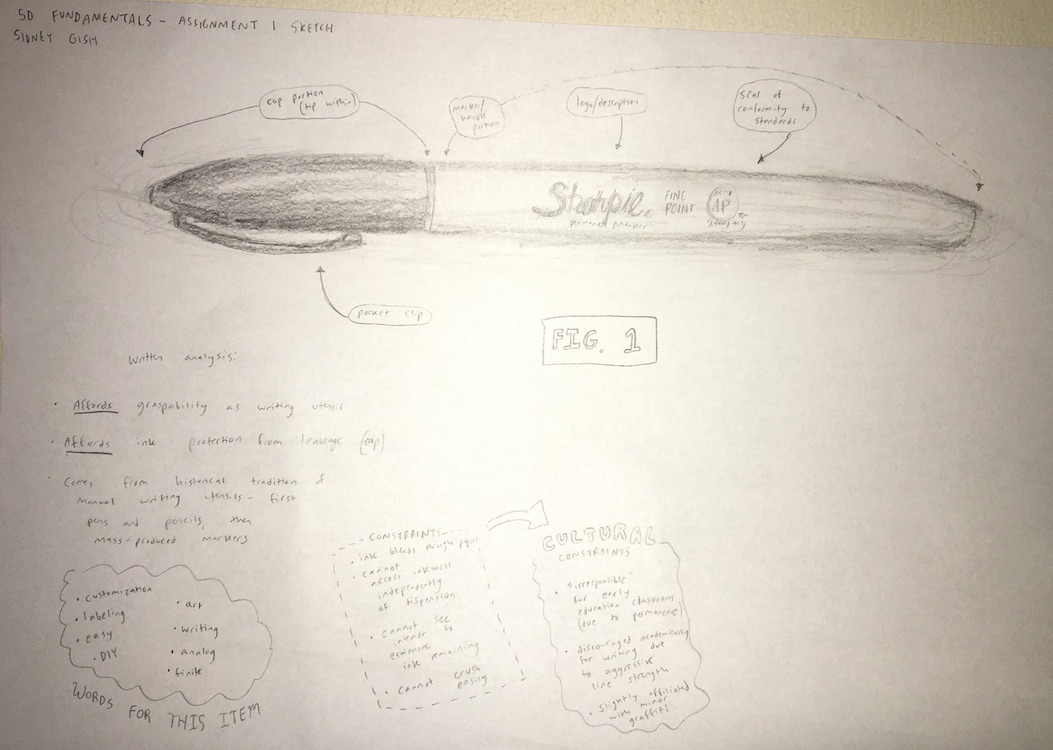 5D FUNDAMENTALS - ASSIGNMENT 1 SKETCH
SIDNEY GISH
cap portion
(tip within)
marker/
handle
portion
logo/description
Seal of
conformity to
standards
Sharpie.
permanent marker
FINE
POINT
AP
pocket clip
FIG. 1
Written analysis:
• Affords graspability as writing utensil
• Affords ink protection from leakage (cap)
• Comes from historical tradition of
manual writing utensils - first
pens and pencils, then
mass-produced markers
• customization
• labeling
• easy
• DIY
• art
• writing
• analog
• finite
WORDS FOR THIS ITEM
CONSTRAINTS
• ink bleeds through
• cannot
access inkwell
independently
of dispension
• cannot see
interior to
estimate
ink remaining
• cannot crush
easily
CULTURAL
CONSTRAINTS
• "irresponsible"
for early
education classrooms
(due to permanence)
• discouraged academically
for writing due
to aggressive
line strength
• slightly affiliated
with minor
graffiti